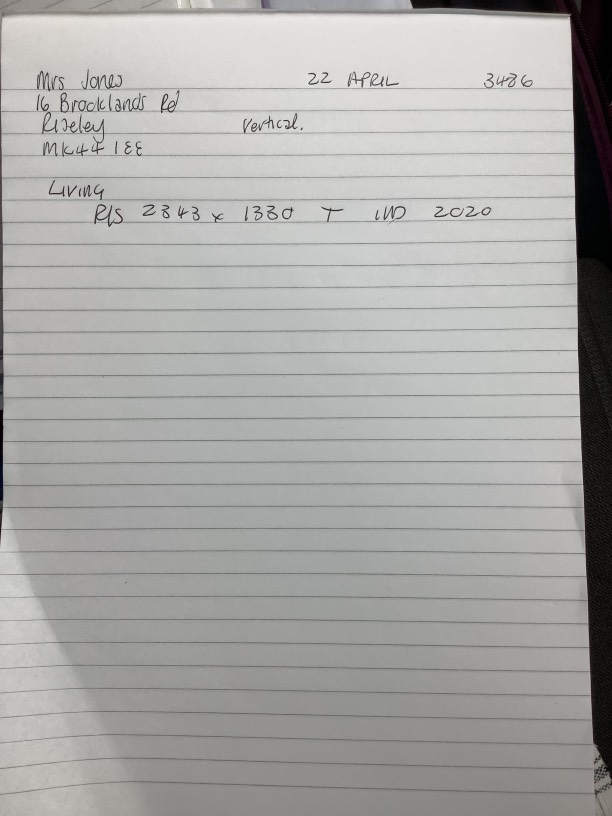 Mrs Jones 22 APRIL 3486
16 Brooklands Rd
Riseley Vertical.
MK44 1EE
Living
R/S 2343 x 1330 T 2020